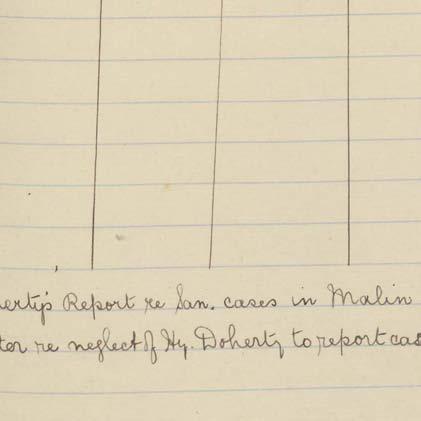 herty's Report re San. cases in Malin
ter re neglect of Hy. Doherty to report cas